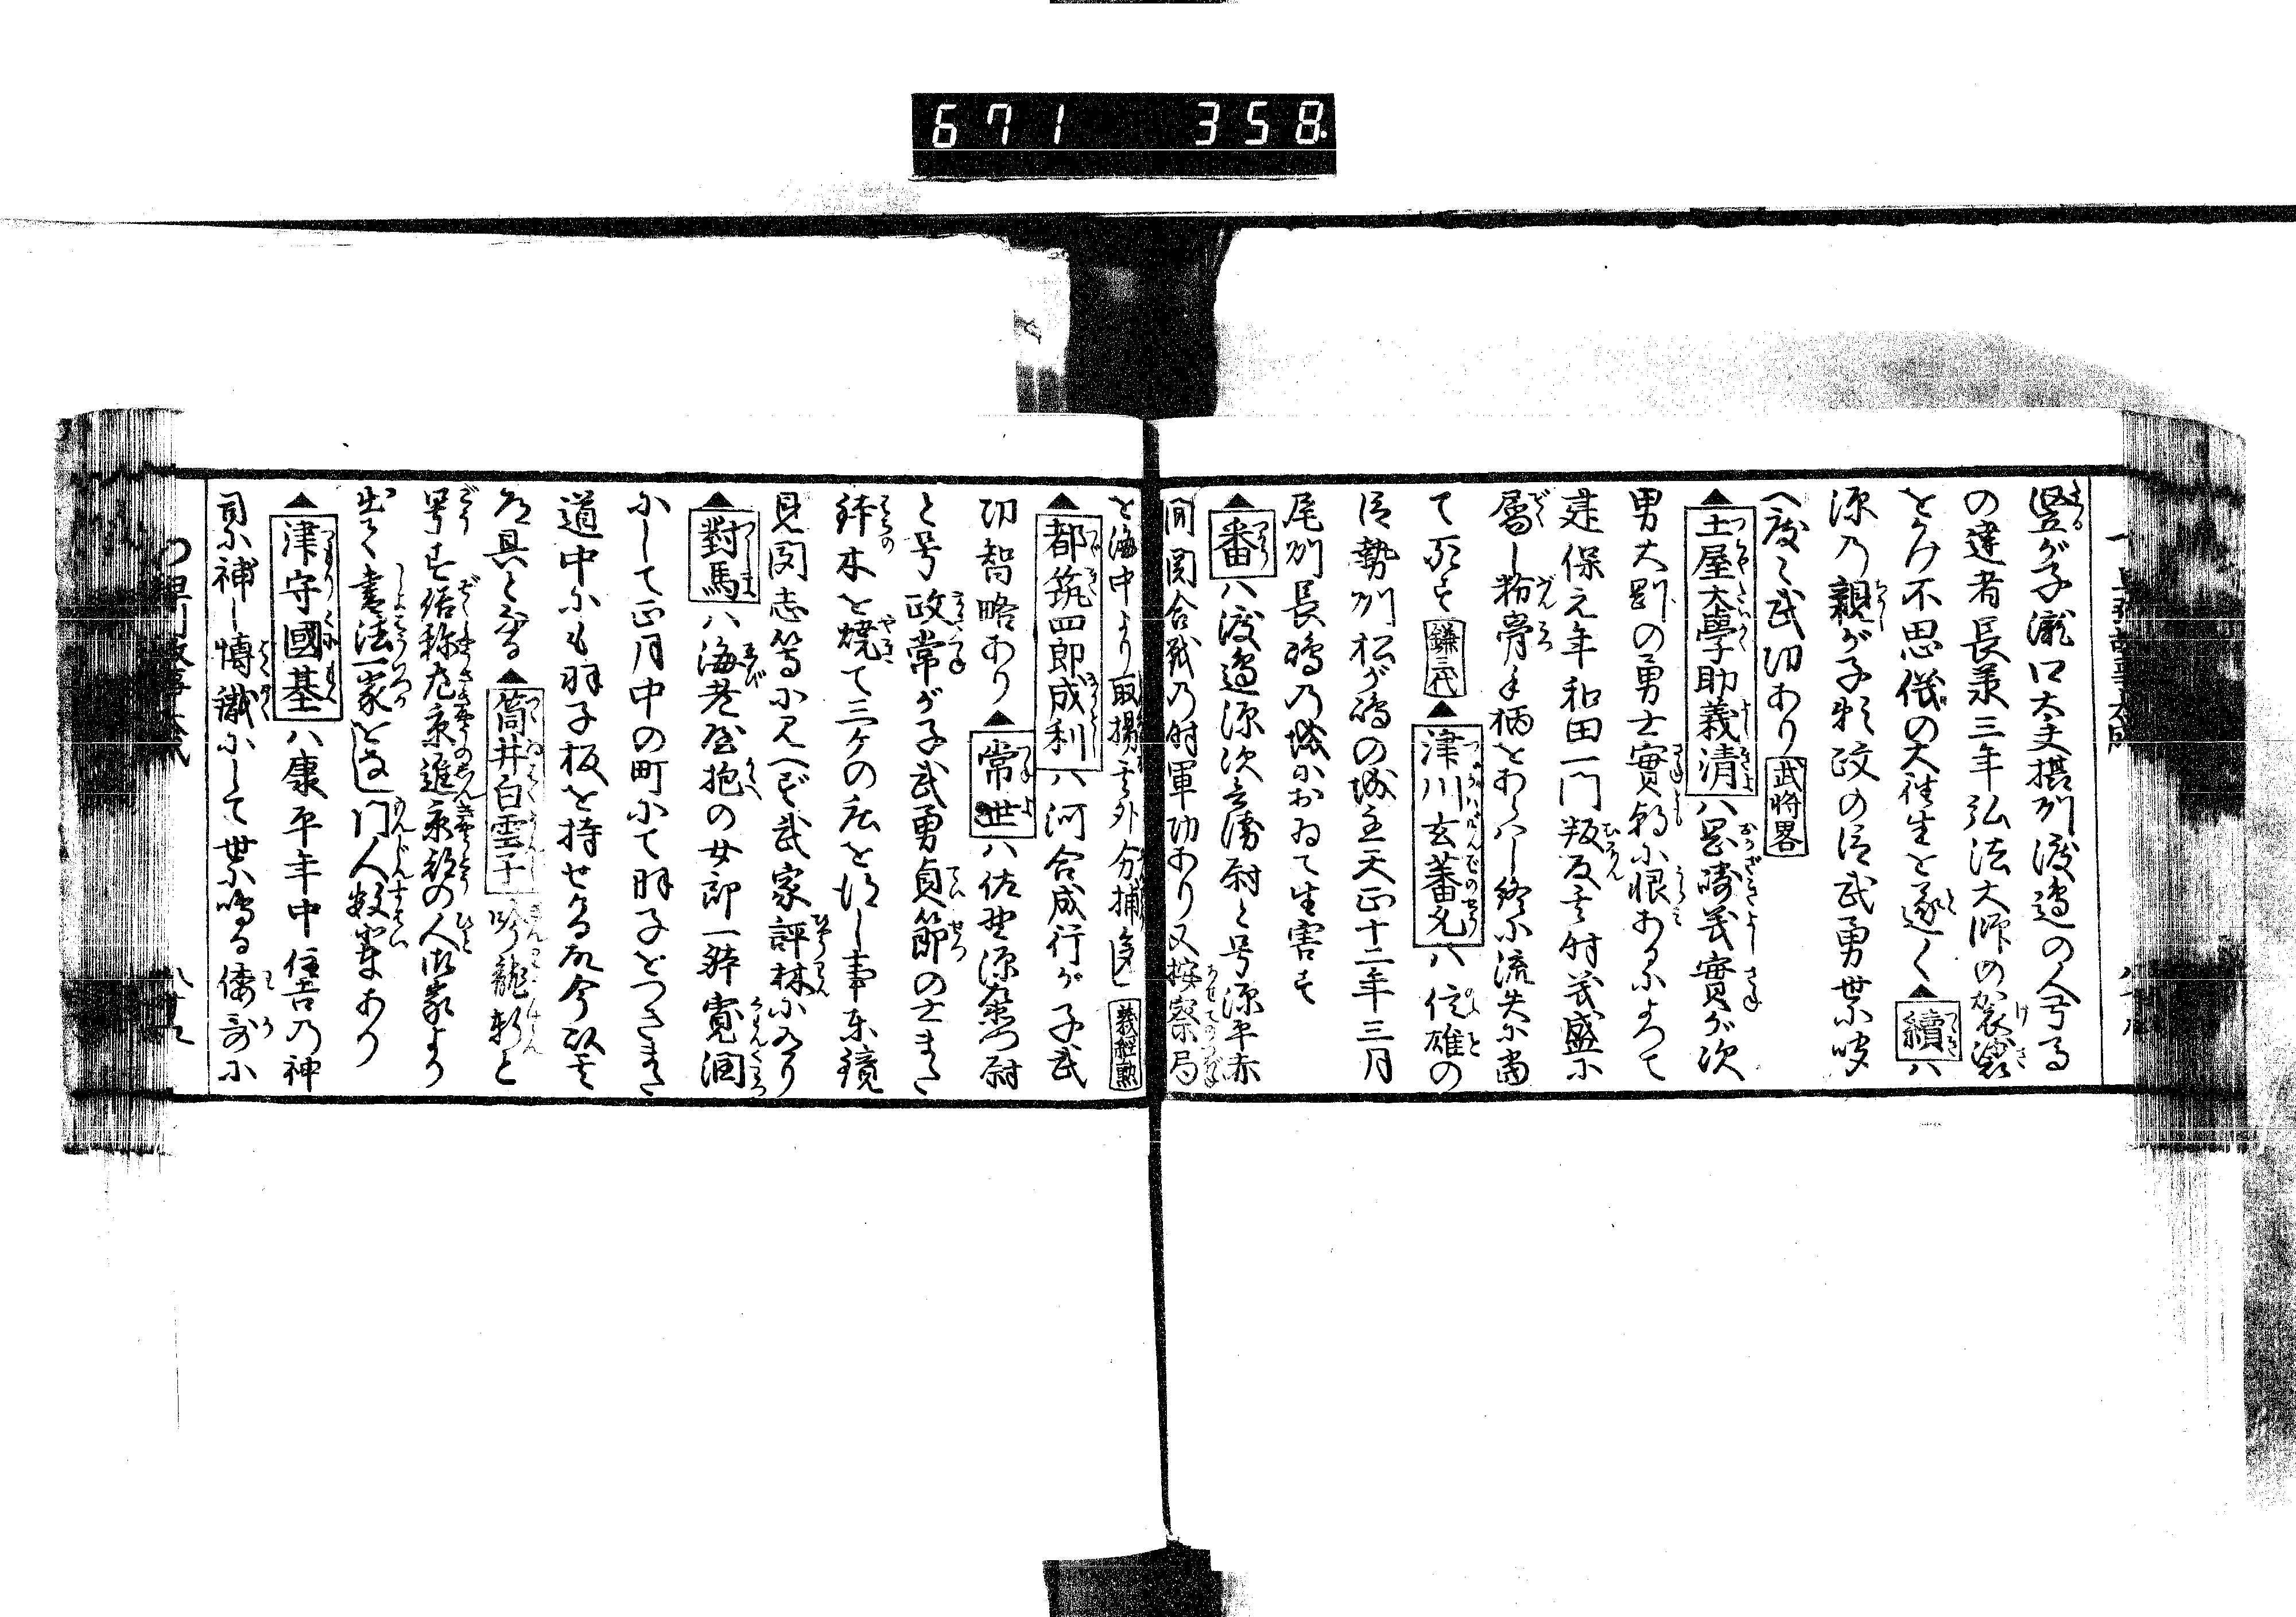 671 358
竪が子瀧口大夫摂州渡邉の人弓馬
の達者長兼三年弘法大師の袈裟
とかけ不思儀の大徃生を遂く▲續ハ
源乃親が子頼政の臣武勇世に喧
へ度々武功あり武将畧
▲土屋大學助義清ハ岡崎義實が次
男大剛の勇士實朝に恨あるによつて
建保元年和田一門叛反の時義盛に
属し粉骨手柄をあらハし終に流矢に當
て死す鎌三代▲津川玄蕃允ハ信雄の
臣勢州松が嶋の城主天正十二年三月
尾州長嶋乃城において生害す
▲番ハ渡邉源次兵衛尉と号源平赤
間関合戦乃時軍功あり又按察局
を海中より取揚其外分捕多し義経勲
▲都筑四郎成利ハ河合成行が子武
功智略あり▲常世ハ佐野源左衛門尉
と号政常が子武勇貞節の士また
鉢木を焼て三ケの庄を得し事東鏡
見聞志等に見へず武家評林に入り
▲對馬ハ海老屋抱の女郎一舜寛濶
にして正月中の町にて羽子をつきまた
道中にも羽子板を持せける故今以其
道具となる▲筒井白雲子吟龍軒と
号す
出て書法一家をなし門人数輩あり
▲津守國基ハ康平年中住吉乃神
司に補し博識にして世に鳴る倭哥に